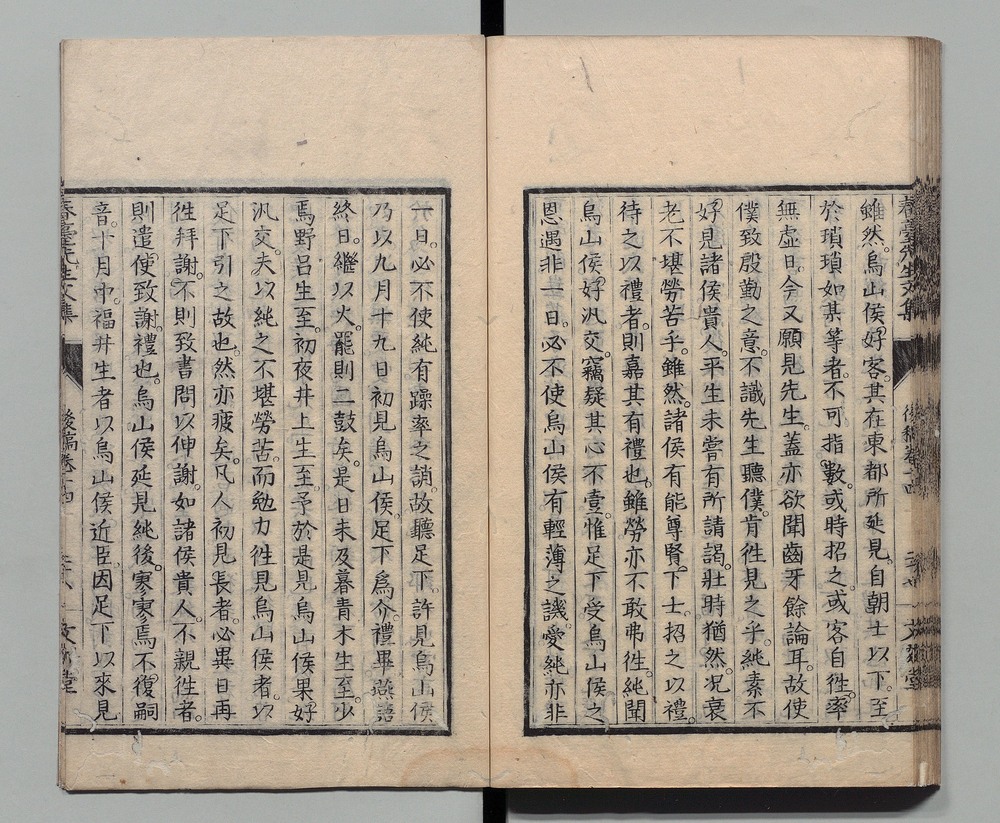 雖然。烏山侯好客。其在東都所延見。自朝士以下。至
於瑣瑣如某等者。不可指數。或時招之。或客自徃。率
無虛日。今又願見先生。蓋亦欲聞齒牙餘論耳。故使
僕致殷勤之意。不識先生聽僕。肯徃見之乎。純素不
好見諸侯貴人。平生未嘗有所請謁。壯時猶然。况衰
老不堪勞苦乎。雖然。諸侯有能尊賢。下士。招之以禮。
待之以禮者。則嘉其有禮也。雖勞亦不敢弗徃。純聞
烏山侯。好汎交。竊疑其心不壹。惟足下受烏山侯之
恩遇。非一日。必不使烏山侯有輕薄之譏。愛純亦非
一日。必不使純有躁率之誚。故聽足下。許見烏山侯
乃以九月十九日初見烏山侯。足下爲介。禮畢燕語
終日。繼以火。罷則二鼓矣。是日未及暮青木生至。少
焉野呂生至。初夜井上生至。予於是見烏山侯果好
汎交。夫以純之不堪勞苦。而勉力徃見烏山侯者。以
足下引之故也。然亦疲矣。凡人初見長者。必異日再
徃拜謝。不則致書問以伸謝。如諸侯貴人。不親徃者。
則遣使致謝。禮也。烏山侯延見純後。寥寥焉不復嗣
音。十月中。福井生者以烏山侯近臣。因足下以來見
春臺先生文集
後稿卷十四